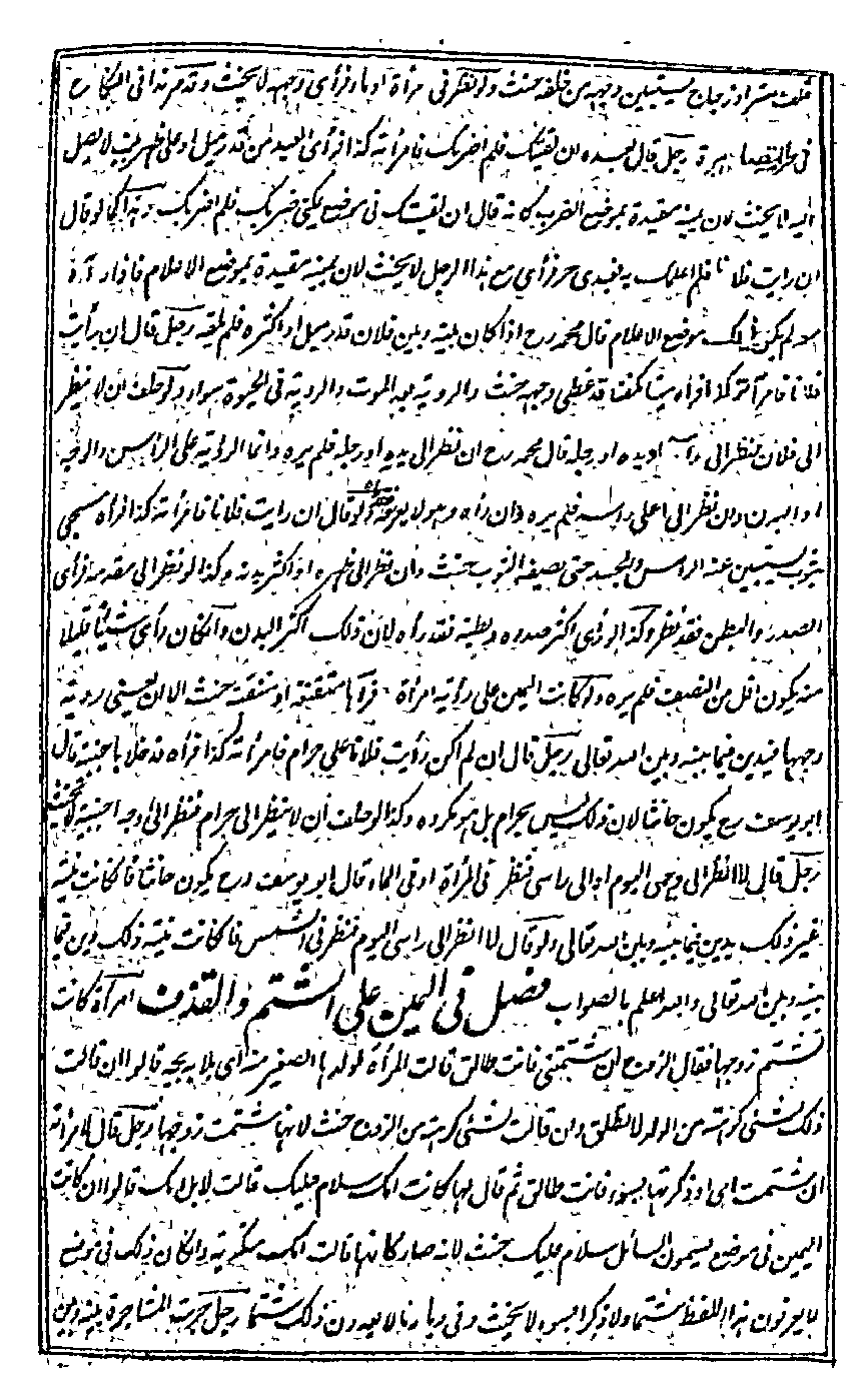 خلف ستر او زجاج يستبين وجهه من خلفه حنث ولو نظر فى مرآة او ماء فرأى وجهه لا يحنث وقد مر هذا فى النكاح
فى حرمة المصاهرة رجل قال لعبده ان لقيتك فلم اضربك فامرأته كذا فرأى العبد من قدر ميل او على ظهر بيت لا يصل
اليه لا يحنث لان يمينه مقيدة بموضع الضرب كانه قال ان لقيتك فى موضع يمكننى ضربك فلم اضربك وهذا كما لو قال
ان رأيت فلانا فلم اعلمك به فعبدى حر فرأى مع هذا الرجل لا يحنث لان يمينه مقيدة بموضع الاعلام فاذا رآه
معه لم يكن ذلك موضع الاعلام قال محمد رح اذا كان بينه وبين فلان قدر ميل او اكثر فلم يلقه رجل قال ان رأيت
فلانا فامرأته كذا فرآه ميتا مكفنا قد غطى وجهه حنث والروية بعد الموت والروية فى الحيوة سواء ولو حلف ان لا ينظر
الى فلان فنظر الى او يده او رجله قال محمد رح ان نظر الى يده او رجله فلم يره وانما الرؤية على الرأس والوجه
او البدن وان نظر الى اعلى رأسه فلم يره وان رآه وهو لا يعرفه فقد رآه ولو قال ان رأيت فلانا فامرأته كذا فرآه مسجى
بثوب يستبين منه الرأس والجسد حتى يصفه الثوب حنث وان نظر الى ظهره او اكثر بدنه وكذا لو نظر الى مقدمه فرأى
الصدر والبطن فقد نظر وكذا لو رأى اكثر صدره وبطنه فقد رآه لان ذلك اكثر البدن وان كان رأى شيئا قليلا
منه يكون اقل من النصف فلم يره ولو كانت اليمين على رؤية امرأة فرآها متقنعة او متنقبة حنث الا ان يعنى روية
وجهها فيدين فيما بينه وبين الله تعالى رجل قال ان لم اكن رأيت فلانا على حرام فامرأته كذا فرآه قد خلا باجنبية قال
ابو يوسف رح يكون حانثا لان ذلك ليس بحرام بل هو مكروه وكذا لو حلف ان لا ينظر الى حرام فنظر الى وجه اجنبية لا يحنث
رجل قال لا انظر الى وجهى اليوم او الى رأسى فنظر فى المرآة او فى الماء قال ابو يوسف رح يكون حانثا فان كانت نيته
غير ذلك يدين فيما بينه وبين الله تعالى ولو قال لا انظر الى رأسى اليوم فنظر فى الشمس فان كانت نيته ذلك دين فيما
بينه وبين الله تعالى والله اعلم بالصواب فصل فى اليمين على الشتم والقذف امرأة كانت
تشتم زوجها فقال الزوج ان شتمتنى فانت طالق قالت المرأة لولدها الصغير منه اى بلايه بچه قالوا ان قالت
ذلك لشىء كرهته من الولد لا تطلق وان قالت لشىء كرهته من الزوج حنث لانها شتمت زوجها رجل قال لامرأته
ان شتمت امى او ذكرتها بسوء فانت طالق ثم قال لها كانت امك سلام عليك قالت لا بل امك قالوا ان كانت
اليمين فى موضع يسمون السائل سلام عليك حنث لانه صار كانها قالت امك مكدية وان كان ذلك فى موضع
لا يعرفون هذا اللفظ شتما ولا ذكرا بسوء لا يحنث وفى ديارنا لا يعدون ذلك شتما رجل جرت المشاجرة بينه وبين